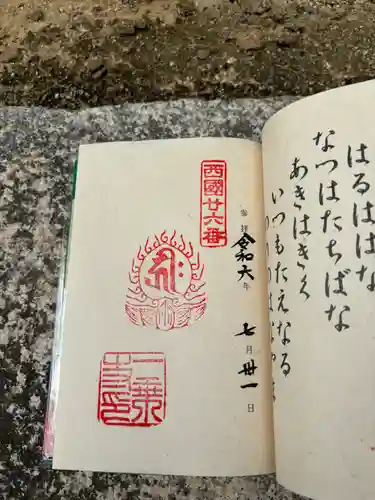 はるははな
なつはたちばな
あきはきく
いつもたえなる
参拝 令和六年 七月卅一日
西國廿六番
一乗
寺印